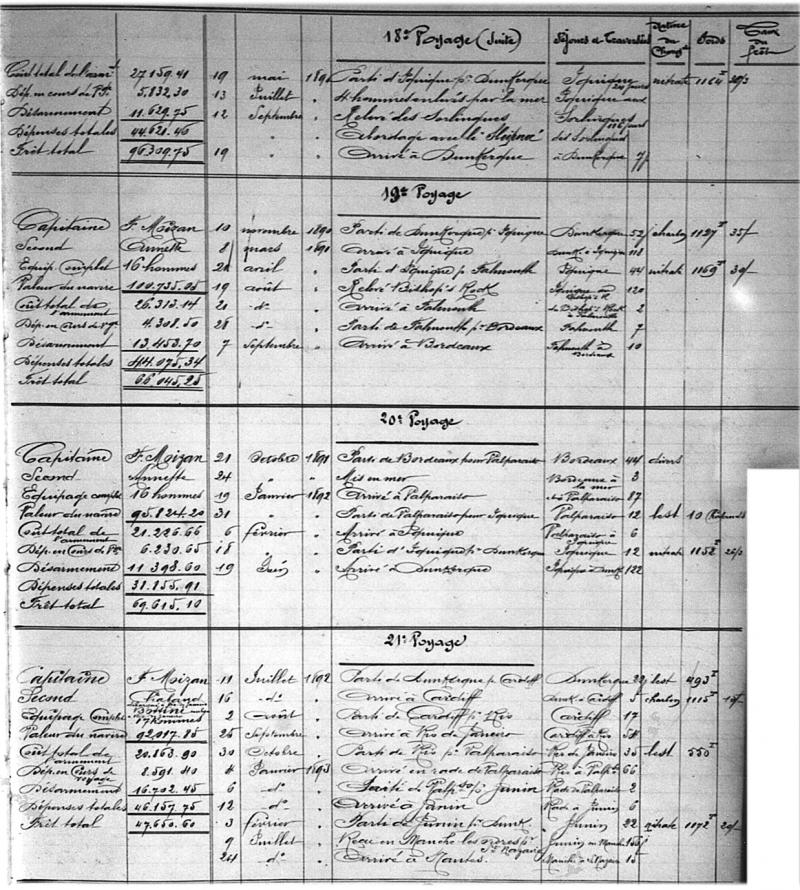 18e Voyage (Suite) Séjours et Traversées Nature du Charg.t Poids Taux du frêt
Coût total de l'arm.t 27.159.41 19 mai Parti d'Iquique p.r Dunkerque Iquique nitrate 1164
Dép. en cours de V. 5.832.30 13 Juillet " 4 hommes enlevés par la mer Iquique aux
Désarmement 11.629.75 12 Septembre " Relevé des Sorlingues Sorlingues
Dépenses totales 44.621.46 " " Abordage avec le des Sorlingues
Frêt total 96.309.75 19 " " Arrivé à Dunkerque à Dunkerque 7
19e Voyage
Capitaine F. Moizan 10 novembre 1890 Parti de Dunkerque p. Iquique Dunkerque 52 charbon 1127 35
Second Annette 8 mars 1891 Arrivé à Iquique Dunk. à Iquique 118
Equip. Complet 16 hommes avril " Parti d'Iquique p. Falmouth Iquique 44 nitrate 1169
Valeur du navire 100.735.05 19 août " Relevé Bishop's Rock Iquique au Bishop's R. 120
Coût total de l'armement 26.313.14 21 d° " Arrivé à Falmouth de Bishop's Rock à Falmouth 2
Dép. en Cours de V. 4.308.50 28 d° " Parti de Falmouth p.r Bordeaux Falmouth 7
Désarmement 13.453.70 7 Septembre " Arrivé à Bordeaux Falmouth à Bordeaux 10
Dépenses totales 44.075.34
Frêt total 66.045.25
20e Voyage
Capitaine F. Moizan 21 Octobre 1891 Parti de Bordeaux pour Valparaiso Bordeaux 44 divers
Second Annette 24 " " Mis en mer Bordeaux à la mer 3
Equipage complet 16 hommes 19 Janvier 1892 Arrivé à Valparaiso Valparaiso 87
Valeur du navire 95.824.20 31 " " Parti de Valparaiso pour Iquique Valparaiso 12 lest 10
Coût total de l'armement 21.226.66 6 février " Arrivé à Iquique Valparaiso à Iquique 6
Dép. en Cours de V. 6.230.65 18 " Parti d'Iquique p.r Dunkerque Iquique 12 nitrate 1152
Désarmement 11.398.60 19 Juin " Arrivé à Dunkerque Iquique à Dunk. 122
Dépenses totales 38.855.91
Frêt total 69.615.10
21e Voyage
Capitaine F. Moizan 11 Juillet 1892 Parti de Dunkerque p. Cardiff Dunkerque 22 lest 493
Second 16 d° " Arrivé à Cardiff Dunk. à Cardiff 5 charbon 1115
Equipage Complet 17 hommes 2 Août " Parti de Cardiff p.r Rio Cardiff 17
Valeur du navire 92.017.85 Septembre " Arrivé à Rio de Janeiro Cardiff à Rio 54
Coût total de l'armement 20.863.90 30 Octobre " Parti de Rio p.r Valparaiso Rio de Janeiro 35 lest 550
Dép. en Cours de voyage 8.591.40 4 Janvier 1893 Arrivé en rade de Valparaiso Rio à Valp.so 66
Désarmement 16.702.45 6 d° " Parti de Valp.so p.r Junin Rade de Valparaiso 2
Dépenses totales 46.157.75 12 d° " Arrivé à Junin Rade à Junin 6
Frêt total 47.650.60 3 février " Parti de Junin p.r Dunk. Junin 22 nitrate 1172
9 Juillet " Reçu en Manche les ordres p.r St Nazaire Junin en Manche
24 d° " Arrivé à Nantes. Manche à St Nazaire 15